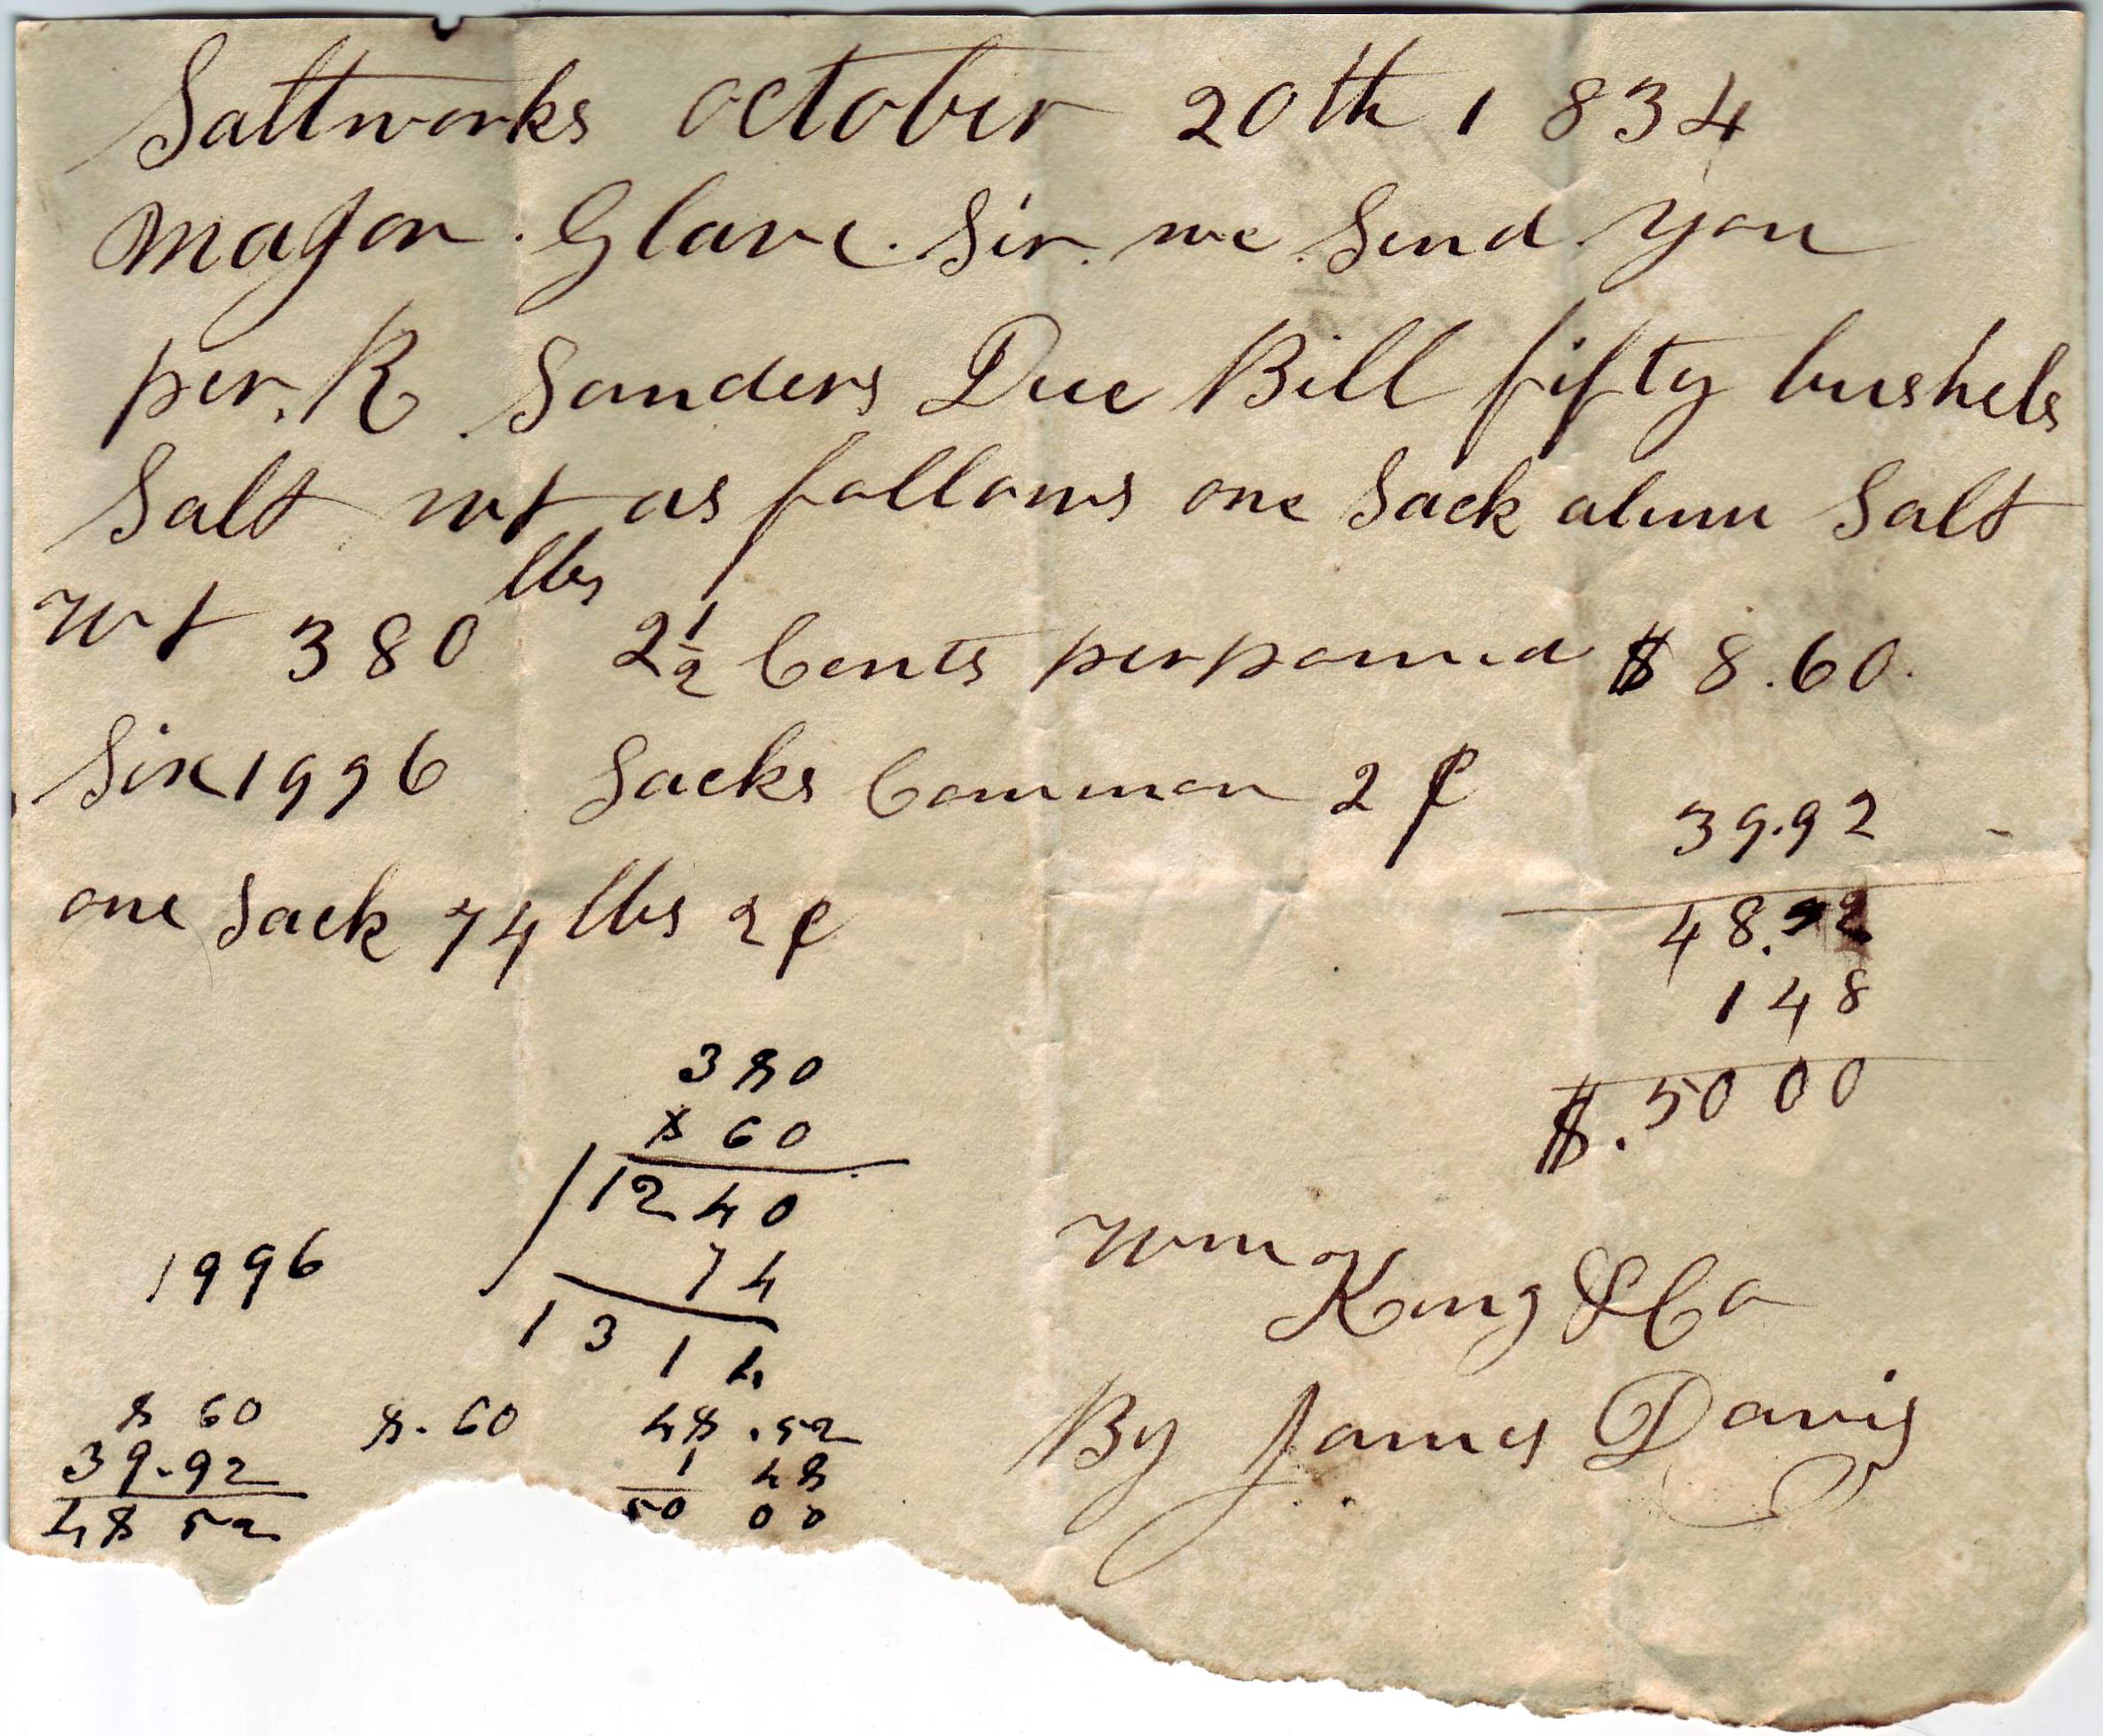 Saltworks October 20th 1834
Major Glave. Sir. we Send you
per. R Sanders Due Bill fifty bushels
Salt wt as follows one Sack alum Salt
wt 380 lbs 2 1/2 Cents per pound $ 8.60.
Six 1996 Sacks Common 2 ¢ 39.92
one Sack 74 lbs 2 ¢ 48.52
148
$.50 00
380
860
1240
74
1314
1996
Wm King & Co
By James Davis
8 60
39.92
48 52
8.60
48.52
1 48
50 00